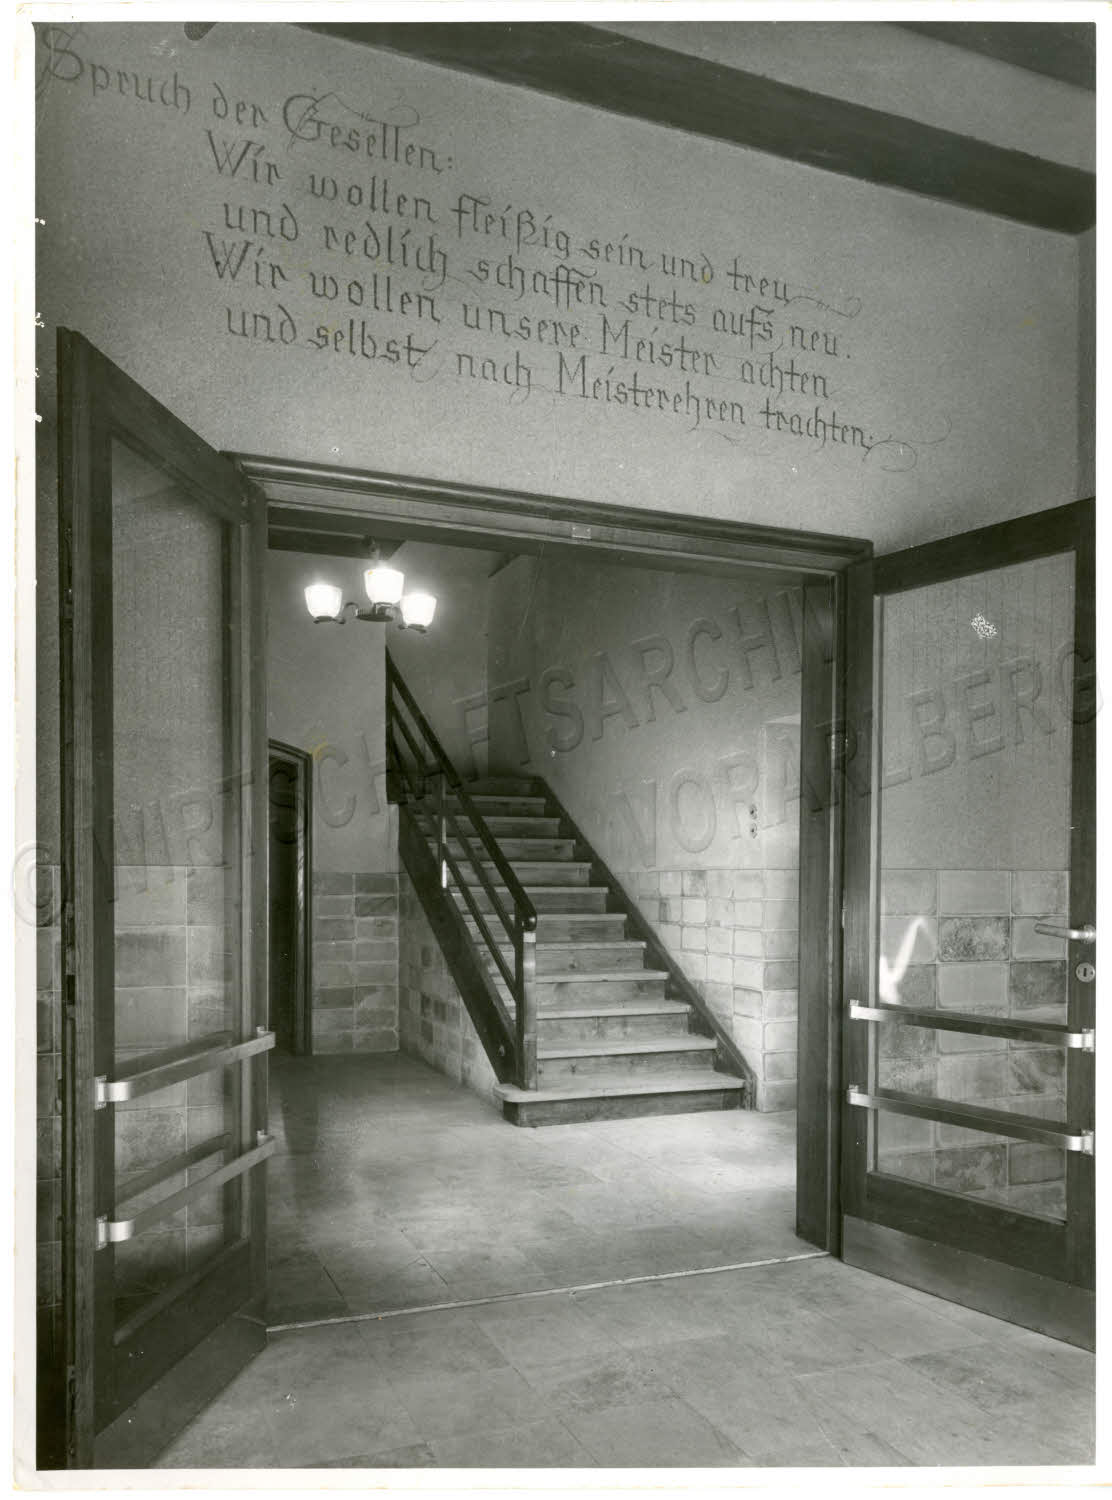 Spruch der Gesellen:
Wir wollen fleißig sein und treu
und redlich schaffen stets aufs neu.
Wir wollen unsere Meister achten
und selbst nach Meisterehren trachten.
© WIRTSCHAFTSARCHIV
VORARLBERG